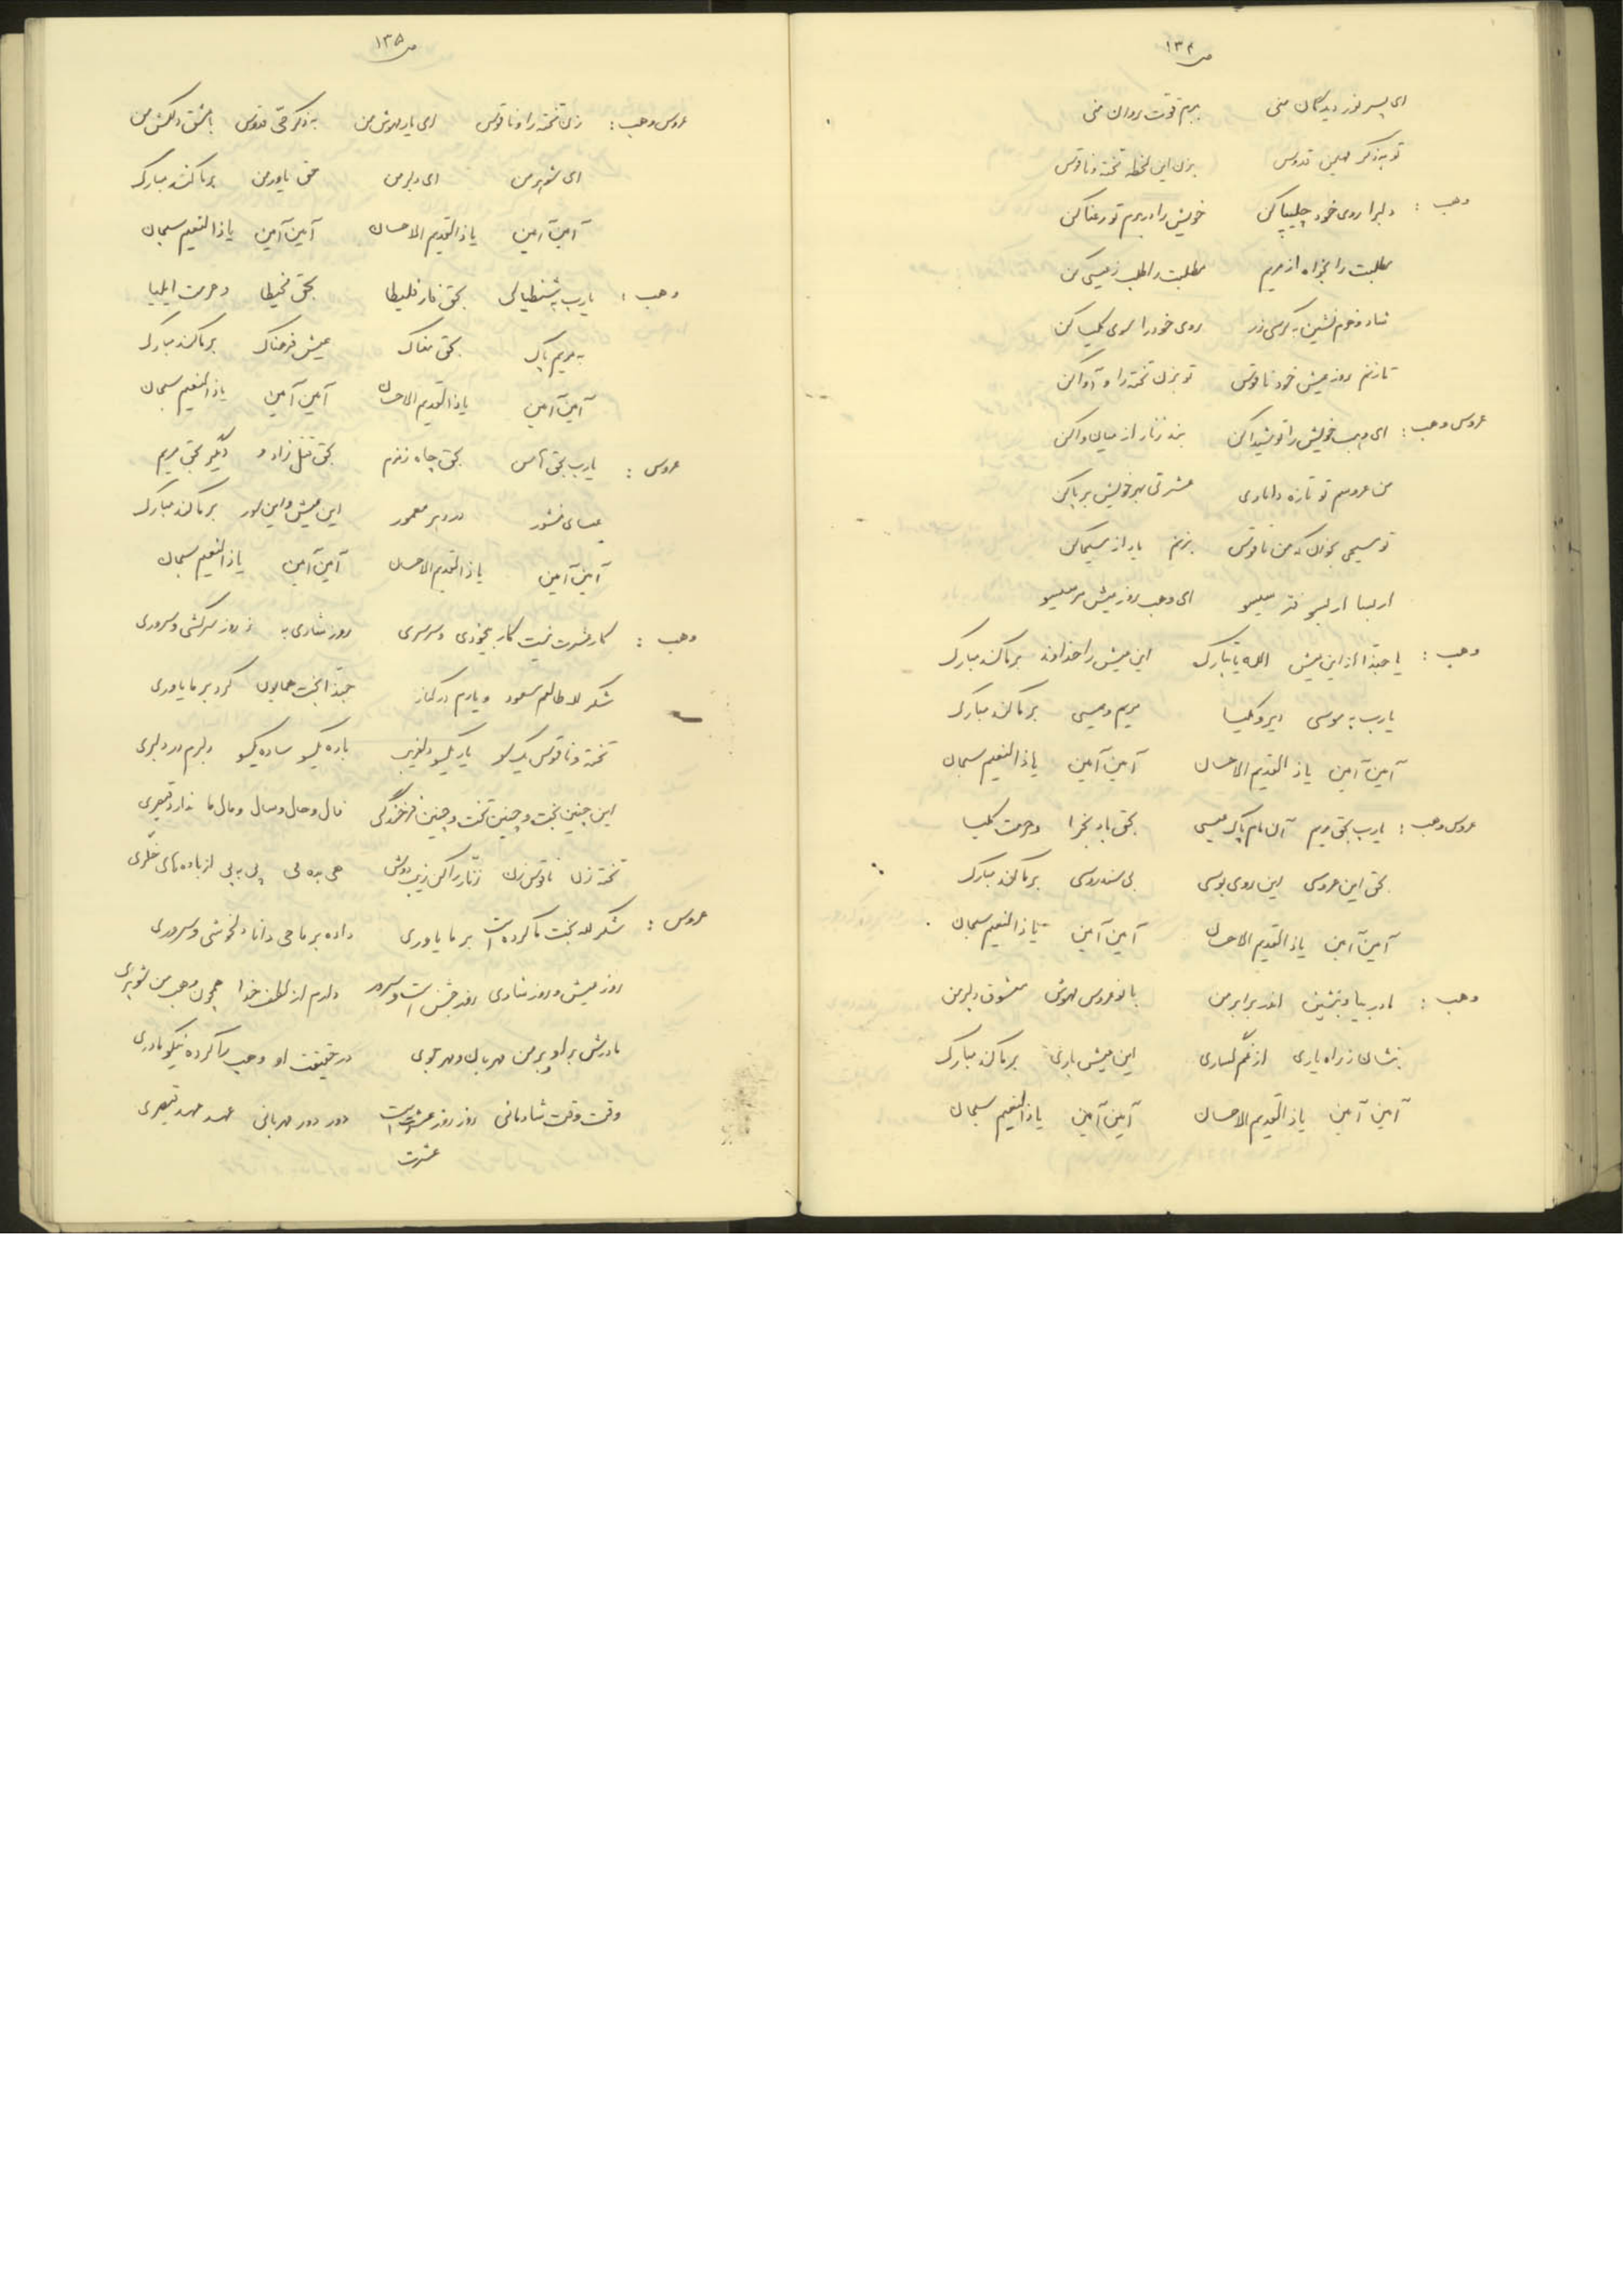 ص ۱۳۴
ای پسر نور دیدگان منی برم قوت روان منی
تو به ذکر مهین قدوس بزن این لحظه تخته و ناقوس
وهب : دلبرا روی خود چلیپا کن خویش را در برم تو رعنا کن
مطلبت را بخواه از مریم مطلبت را طلب ز عیسی کن
شاد و خرم نشین به کرسی زر روی خود را بسوی کلیسا کن
تا زنم روز عیش خود ناقوس تو بزن تخته را و آوا کن
عروس وهب : ای وهب خویش را تو شیدا کن بند زنار از میان وا کن
من عروسم تو تازه دامادی عشرتی بهر خویش برپا کن
تو مسیحی بخوان که من ناقوس بزنم یاد از مسیحا کن
ای وهب روز عیش
وهب : یا حبذا از این عیش الله یا تبارک این عیش را خداوند بر ما کند مبارک
یارب به موسی دیر و کلیسا مریم و عیسی بر ما کند مبارک
آمین آمین یا ذالقدیم الاحسان آمین آمین یا ذالنعیم سبحان
عروس وهب : یارب بحق مریم آن نام پاک عیسی بحق و حرمت کلیسا
بحق این عروسی این روی بوسی بر ما کند مبارک
آمین آمین یا ذالقدیم الاحسان آمین آمین یا ذالنعیم سبحان
وهب : مادر بیا و بنشین اندر برابر من با نوعروس مهوش معشوق دلبر من
بنشان ز راه یاری از غمگساری این عیش بر ما کند مبارک
آمین آمین یا ذالقدیم الاحسان آمین آمین یا ذالنعیم سبحان
ص ۱۳۵
عروس وهب : زن تخته را و ناقوس ای یار مهوش من به ذکر حی قدوس با عشق دلکش من
ای شوهر من ای دلبر من حق یاور من بر ما کند مبارک
آمین آمین یا ذالقدیم الاحسان آمین آمین یا ذالنعیم سبحان
وهب : یارب بحق فارقلیطا بحق و حرمت ایلیا
به مریم پاک بحق عیش فرحناک بر ما کند مبارک
آمین آمین یا ذالقدیم الاحسان آمین آمین یا ذالنعیم سبحان
عروس : یارب بحق بحق چاه زمزم بحق و دیگر بحق مریم
عیسای در دیر معمور این عیش و این سور بر ما کند مبارک
آمین آمین یا ذالقدیم الاحسان آمین آمین یا ذالنعیم سبحان
وهب : کار عشرت نیست کار بیخودی و سرسری روز شادی به ز روز سرکشی و سروری
شکر لله طالعم مسعود و یارم در کنار حبذا بخت همایون کرد بر ما یاوری
تخته و ناقوس یک سو یار یکسو دلفریب باده یکسو ساده یکسو دلبرم در دلبری
این چنین بخت و چنین تخت و چنین فرخندگی فال و حال و سال و مال ما ندارد قیصری
تخته زن ناقوس زن زنار را کن زیب دوش هی بده می پی به پی از باده‌های خلری
عروس : شکر لله بخت ما کرده است بر ما یاوری داده بر ما حی دانا دلخوشی و سروری
روز عیش و روز شادی روز جشن است و سرور دارم از لطف خدا همچون وهب من شوهری
مادرش بر او و بر من مهربان و مهرجوی در حقیقت او وهب را کرده نیکو مادری
وقت وقت شادمانی روز روز عشرت است دور دور مهربانی عهد عهد قیصری
عشرت